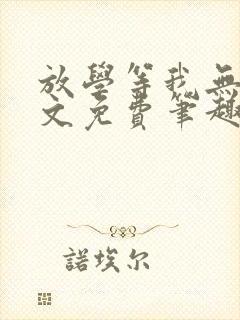 放學等我無
文免費筆趣
諾埃尔